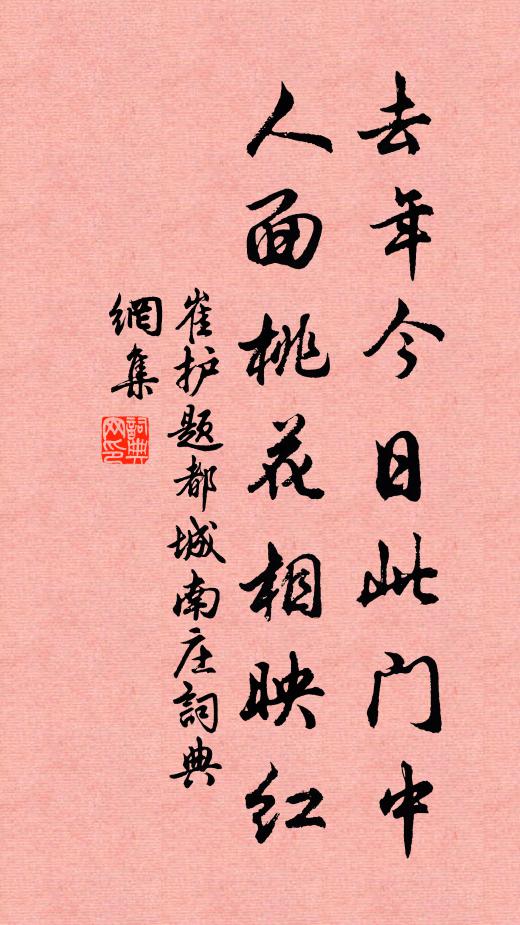 去年今日此门中
人面桃花相映红
崔护题都城南庄詞典
網集
詞典
网印